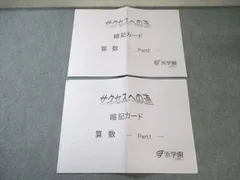 サクセスへの道
暗記カード
算数 — Part2 —
浜学園
サクセスへの道
暗記カード
算数 — Part1 —
浜学園